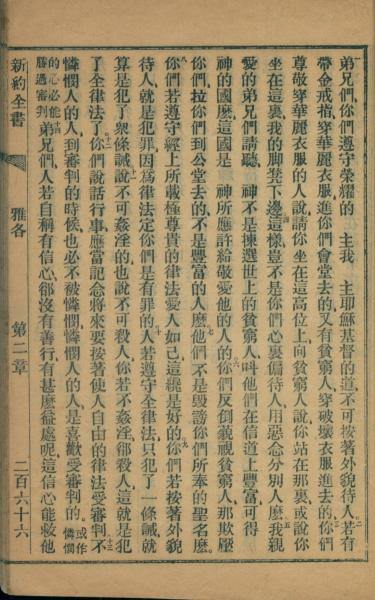 弟兄們、你們遵守榮耀的 主我 主耶穌基督的道、不可按著外貌待人、二若有
帶金戒指、穿華麗衣服、進你們會堂去的、又有貧窮人、穿破壞衣服進去的、三你們
尊敬穿華麗衣服的人說、請你坐在這高位上、向貧窮人說、你站在那裏、或說你
坐在這裏、我的脚凳下邊、四這樣豈不是你們心裏偏待人、用惡念分別人麽、五我親
愛的弟兄們請聽、 神不是揀選世上的貧窮人、呌他們在信道上豐富、可得
神的國麽、這國是 神所應許給敬愛他的人的、六你們反倒藐視貧窮人、那欺壓
你們、拉你們到公堂去的、不是豐富的人麽、七他們不是毀謗你們所奉的聖名麽、
八你們若遵守經上所載極尊貴的律法、愛人如己、這纔是好的、九你們若按著外貌
待人、就是犯罪、因爲律法定你們是有罪的、十人若遵守全律法、只犯了一條誡、就
算是犯了衆條誡、十一說不可姦淫的、也說不可殺人、你若不姦淫、卻殺人、這就是犯
了全律法了、十二你們說話行事、應當記念將來要按著使人自由的律法受審判、十三不
憐憫人的人、到審判的時候、也必不被憐憫、憐憫人的人、是喜歡受審判的、或作憐憫
的心必能勝過審判十四弟兄們、人若自稱有信心、卻沒有善行、有甚麽益處呢、這信心能救他
新約全書 雅各 第二章 二百六十六